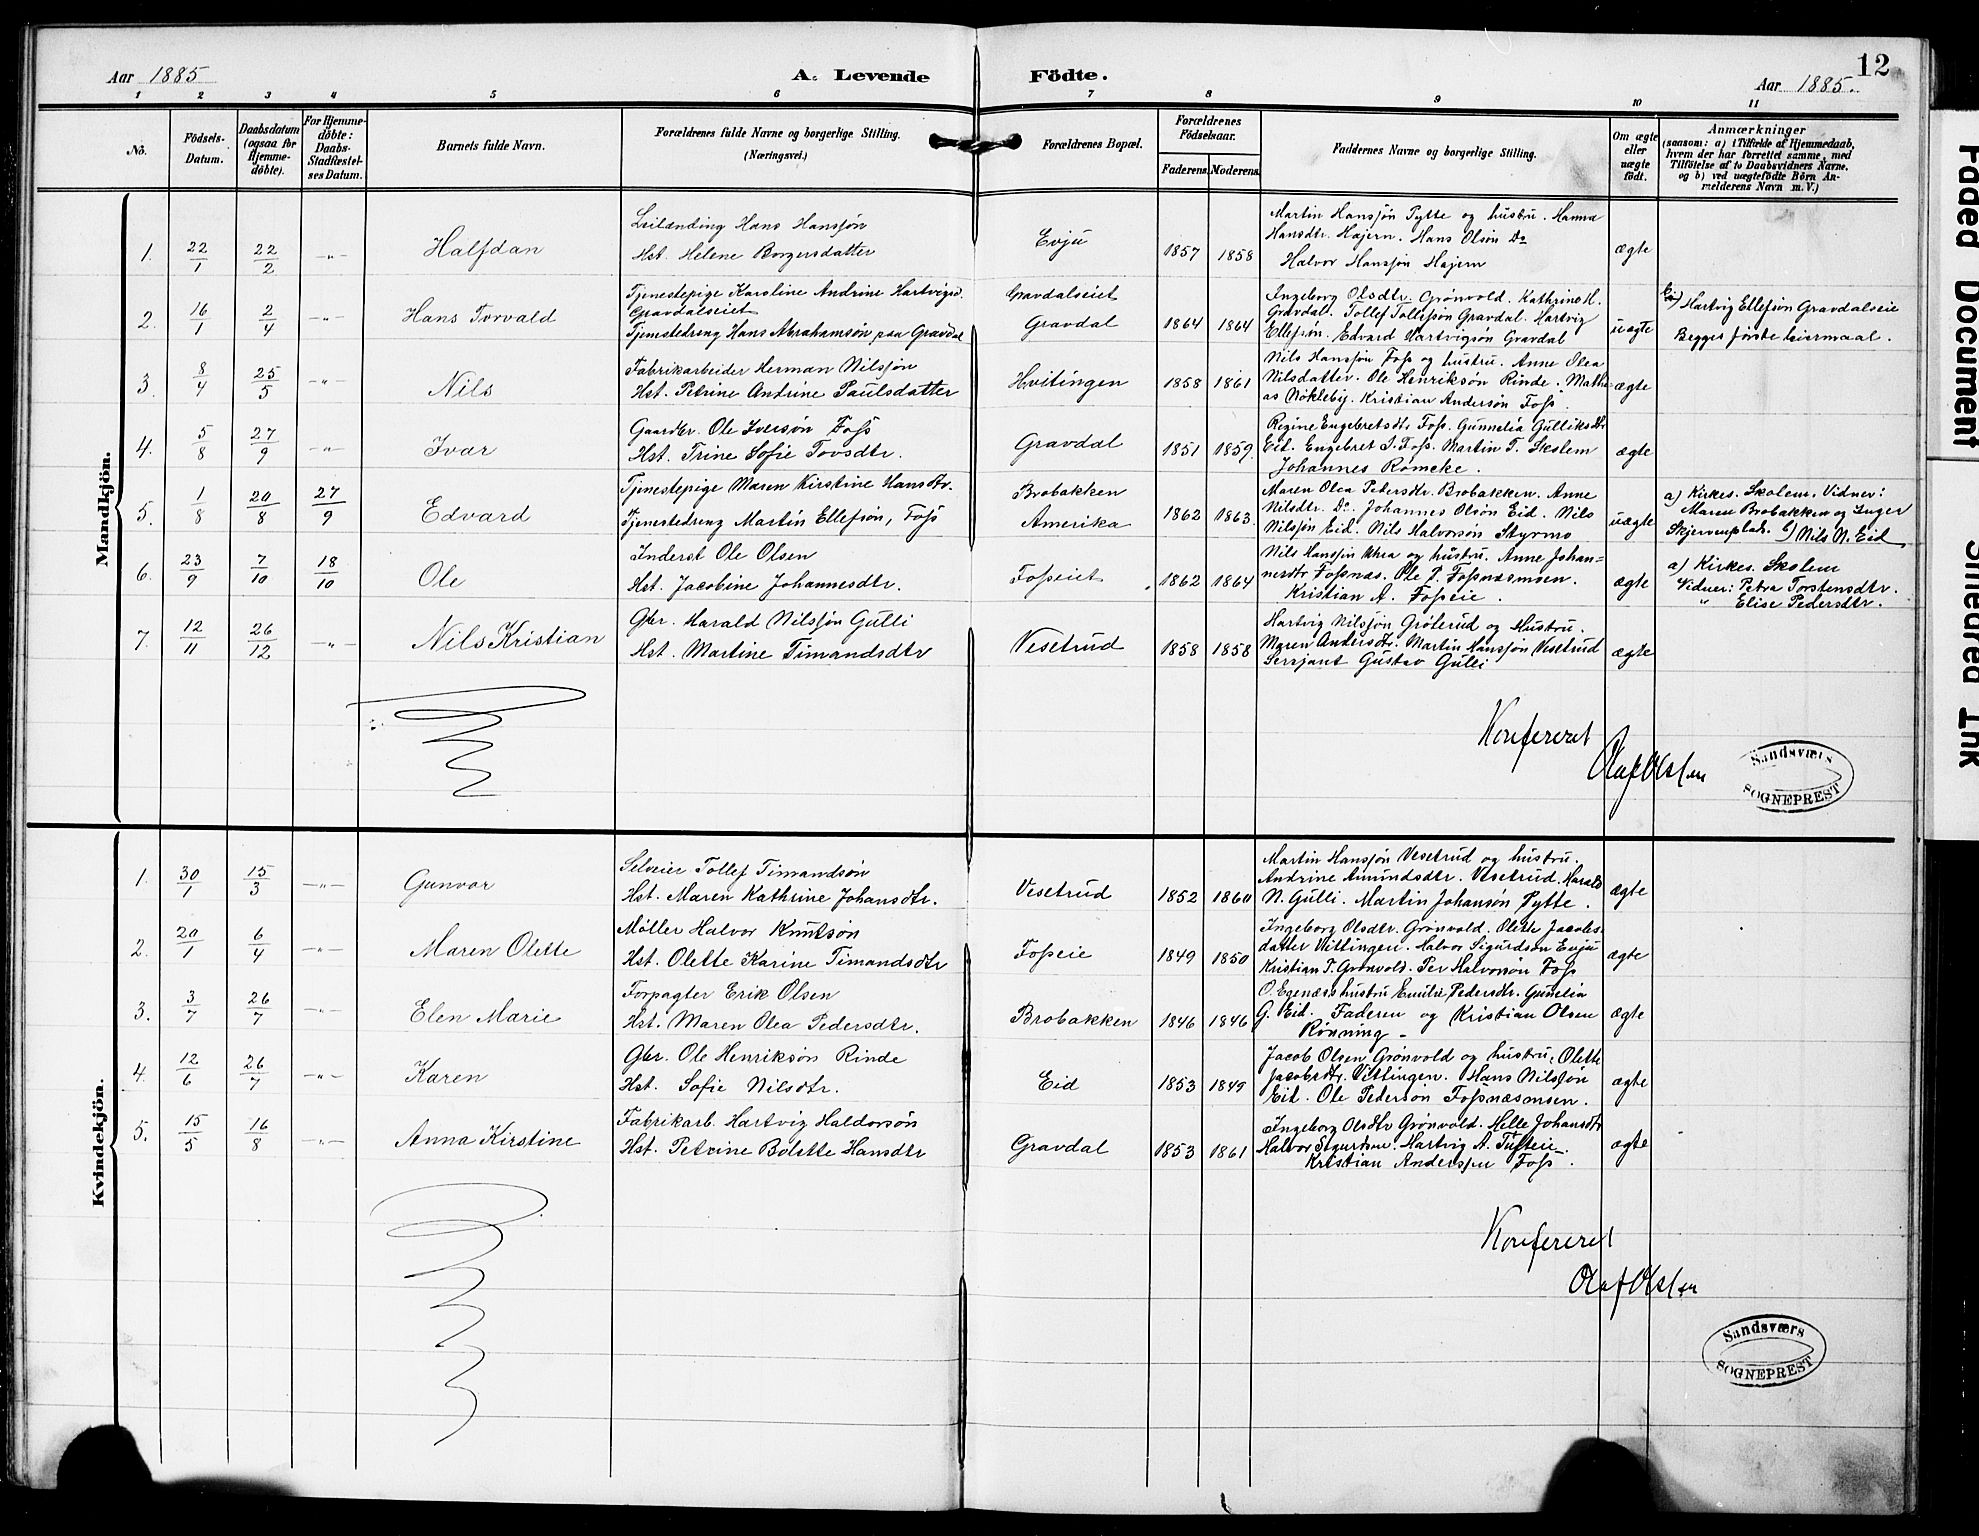 Aar 1885
A. Levende Födte.
Aar 1885.
12
1 2 3 4 5 6 7 8 9 10 11
No.
Födsels-Datum.
Daabsdatum (ogsaa for Hjemme-döbte).
For Hjemme-döbte: Daabs-Stadfæstel-ses Datum.
Barnets fulde Navn.
Forældrenes fulde Navne og borgerlige Stilling.
(Næringsvei.)
Forældrenes Bopæl.
Forældrenes Födselsaar.
Faderens. Moderens.
Faddernes Navne og borgerlige Stilling.
Om ægte eller uægte födt.
Anmærkninger
(saasom: a) i Tilfælde af Hjemmedaab, hvem der har forrettet samme, med Tilföielse af to Daabsvidners Navne. og b) ved uægtefödte Börn An-melderens Navn m. V.)
Mandkjön.
1. 22/1 22/2 -"- Halfdan
Leilænding Hans Hansjøn
Hst. Helene Borgersdatter
Evju 1857 1858
Martin Hansjøn Pytte og hustru. Hanna
Hansdtr. Hajern. Hans Olsøn Do
Halvor Hansjøn Hajern
ægte
2. 16/1 2/4 -"- Hans Torvald
Tjenestepige Karoline Andrine Hartvigsd.
Gravdalseiet
Tjenestedreng Hans Abrahamsøn paa Gravdal
Gravdalseiet
Gravdal 1864 1864
Ingeborg Olsdtr. Grønvold. Kathrine H.
Gravdal. Tollef Tollefsøn Gravdal. Hartvig
Ellefsøn. Edvard Hartvigsøn Gravdal
uægte
Hartvig Ellefsjøn Gravdalseie
Begges første leiermaal.
3. 8/4 25/5 -"- Nils
Fabrikarbeider Herman Nilsjøn
Hst. Petrine Andrine Paulsdatter
Hvitingen 1858 1861
Nils Hansjøn Foss og hustru. Anne Olea
Nilsdatter. Ole Henriksøn Rinde. Mathi=
as Nökleby. Kristian Andersøn Foss.
ægte
4. 5/8 27/9 -"- Ivar
Gaardbr. Ole Iversøn Foss
Hst. Trine Sofie Tovsdtr.
Gravdal 1851 1859.
Regine Engebretsdtr Foss. Gunnelia Gulliksdtr
Eid. Engebret I. Foss. Martin T. Skolem
Johannes Römcke.
ægte
5. 1/8 20/8 27/9 Edvard
Tjenestepige Maren Kirstine Hansdtr.
Tjenestedreng Martin Ellefsøn, Foss
Brobakken
Amerika 1862 1863.
Maren Olea Pedersdtr. Brobakken. Anne
Nilsdtr. Do. Johannes Olsøn Eid. Nils
Nilsjøn Eid. Nils Halvorsøn Styrmo
uægte
a) Kirkes. Skolem. Vidner:
Maren Brobakken og Inger
Skjervenplads. b) Nils N. Eid
6. 23/9 7/10 18/10 Ole
Inderst Ole Olsen
Hst. Jacobine Johannesdtr.
Fosseiet 1862 1864
Nils Hansjøn Rhea og hustru. Anne Johan=
nesdtr Fossnæs. Ole P. Fossnæsmoen.
Kristian A. Fosseie.
ægte
a) Kirkes. Skolem
Vidner: Petra Torstensdtr.
" Elise Pedersdtr.
7. 12/11 26/12 -"- Nils Kristian
Gbr. Harald Nilsjøn Gulli
Hst. Martine Timandsdtr
Vesetrud 1858 1858
Hartvig Nilsjøn Grøterud og Hustru.
Maren Andersdtr. Martin Hansjøn Vesetrud
Sersjant Gustav Gulli
ægte
Konfereret
Olaf Olsen
Sandsværs
SOGNEPREST
Kvindekjön.
1. 30/1 15/3 -"- Gunvor
Selveier Tollef Timandsøn
Hst. Maren Kathrine Johansdtr.
Vesetrud 1852 1860
Martin Hansjøn Vesetrud og hustru.
Andrine Amundsdtr. Vesetrud. Harald
N. Gulli. Martin Johansøn Pytte.
ægte
2. 20/1 6/4 -"- Maren Olette
Møller Halvor Knutsøn
Hst. Olette Karine Timandsdtr
Fosseie 1849 1850
Ingeborg Olsdtr. Grønvold. Olette Jacobs-
datter Vittingen. Halvor Sigurdson Evju
Kristian T. Grønvold. Per Halvorsøn Foss
ægte
3. 3/7 26/7 -"- Elen Marie
Forpagter Erik Olsen
Hst. Maren Olea Pedersdtr.
Brobakken 1846 1846
O. Egenæss hustru Emilie Pedersdtr. Gunelia
G. Eid. Faderen og Kristian Olsen
Rönning -
ægte
4. 12/6 26/7 -"- Karen
Gbr. Ole Henriksøn Rinde
Hst. Sofie Nilsdtr.
Eid 1853 1849
Jacob Olsen Grønvold og hustru. Olette
Jacobsdtr. Vittingen. Hans Nilsjøn
Eid. Ole Pedersøn Fossnæsmoen.
ægte
5. 15/5 16/8 -"- Anna Kirstine
Fabrikarb. Hartvig Haldorsön
Hst. Petrine Bolette Hansdtr
Gravdal 1853 1861
Ingeborg Olsdtr Grönvold. Helle Johansdtr
Halvor Sigurdson. Hartvig A. Tufteie.
Kristian Andersjen Foss.
ægte
Konfereret
Olaf Olsen
Sandsværs
SOGNEPREST
Faded Document
Smeared Ink